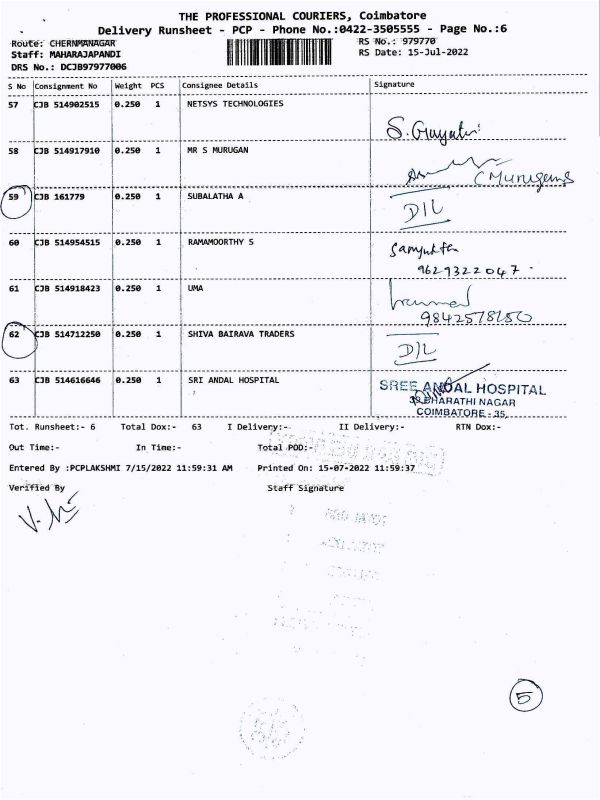 THE PROFESSIONAL COURIERS, Coimbatore
Delivery Runsheet - PCP - Phone No.:0422-3505555 - Page No.:6
Route: CHERNMANAGAR RS No.: 979770
Staff: MAHARAJAPANDI RS Date: 15-Jul-2022
DRS No.: DCJB97977006
S No Consignment No Weight PCS Consignee Details Signature
57 CJB 514902515 0.250 1 NETSYS TECHNOLOGIES
S. Gayatri
58 CJB 514917910 0.250 1 MR S MURUGAN
C Murugams
59 CJB 161779 0.250 1 SUBALATHA A
D/L
60 CJB 514954515 0.250 1 RAMAMOORTHY S
9629322047
61 CJB 514918423 0.250 1 UMA
9842578150
62 CJB 514712250 0.250 1 SHIVA BAIRAVA TRADERS
D/L
63 CJB 514616646 0.250 1 SRI ANDAL HOSPITAL
SREE ANDAL HOSPITAL
BHARATHI NAGAR
COIMBATORE - 35
Tot. Runsheet:- 6 Total Dox:- 63 I Delivery:- II Delivery:- RTN Dox:-
Out Time:- In Time:- Total POD:-
Entered By :PCPLAKSHMI 7/15/2022 11:59:31 AM Printed On: 15-07-2022 11:59:37
Verified By Staff Signature
5